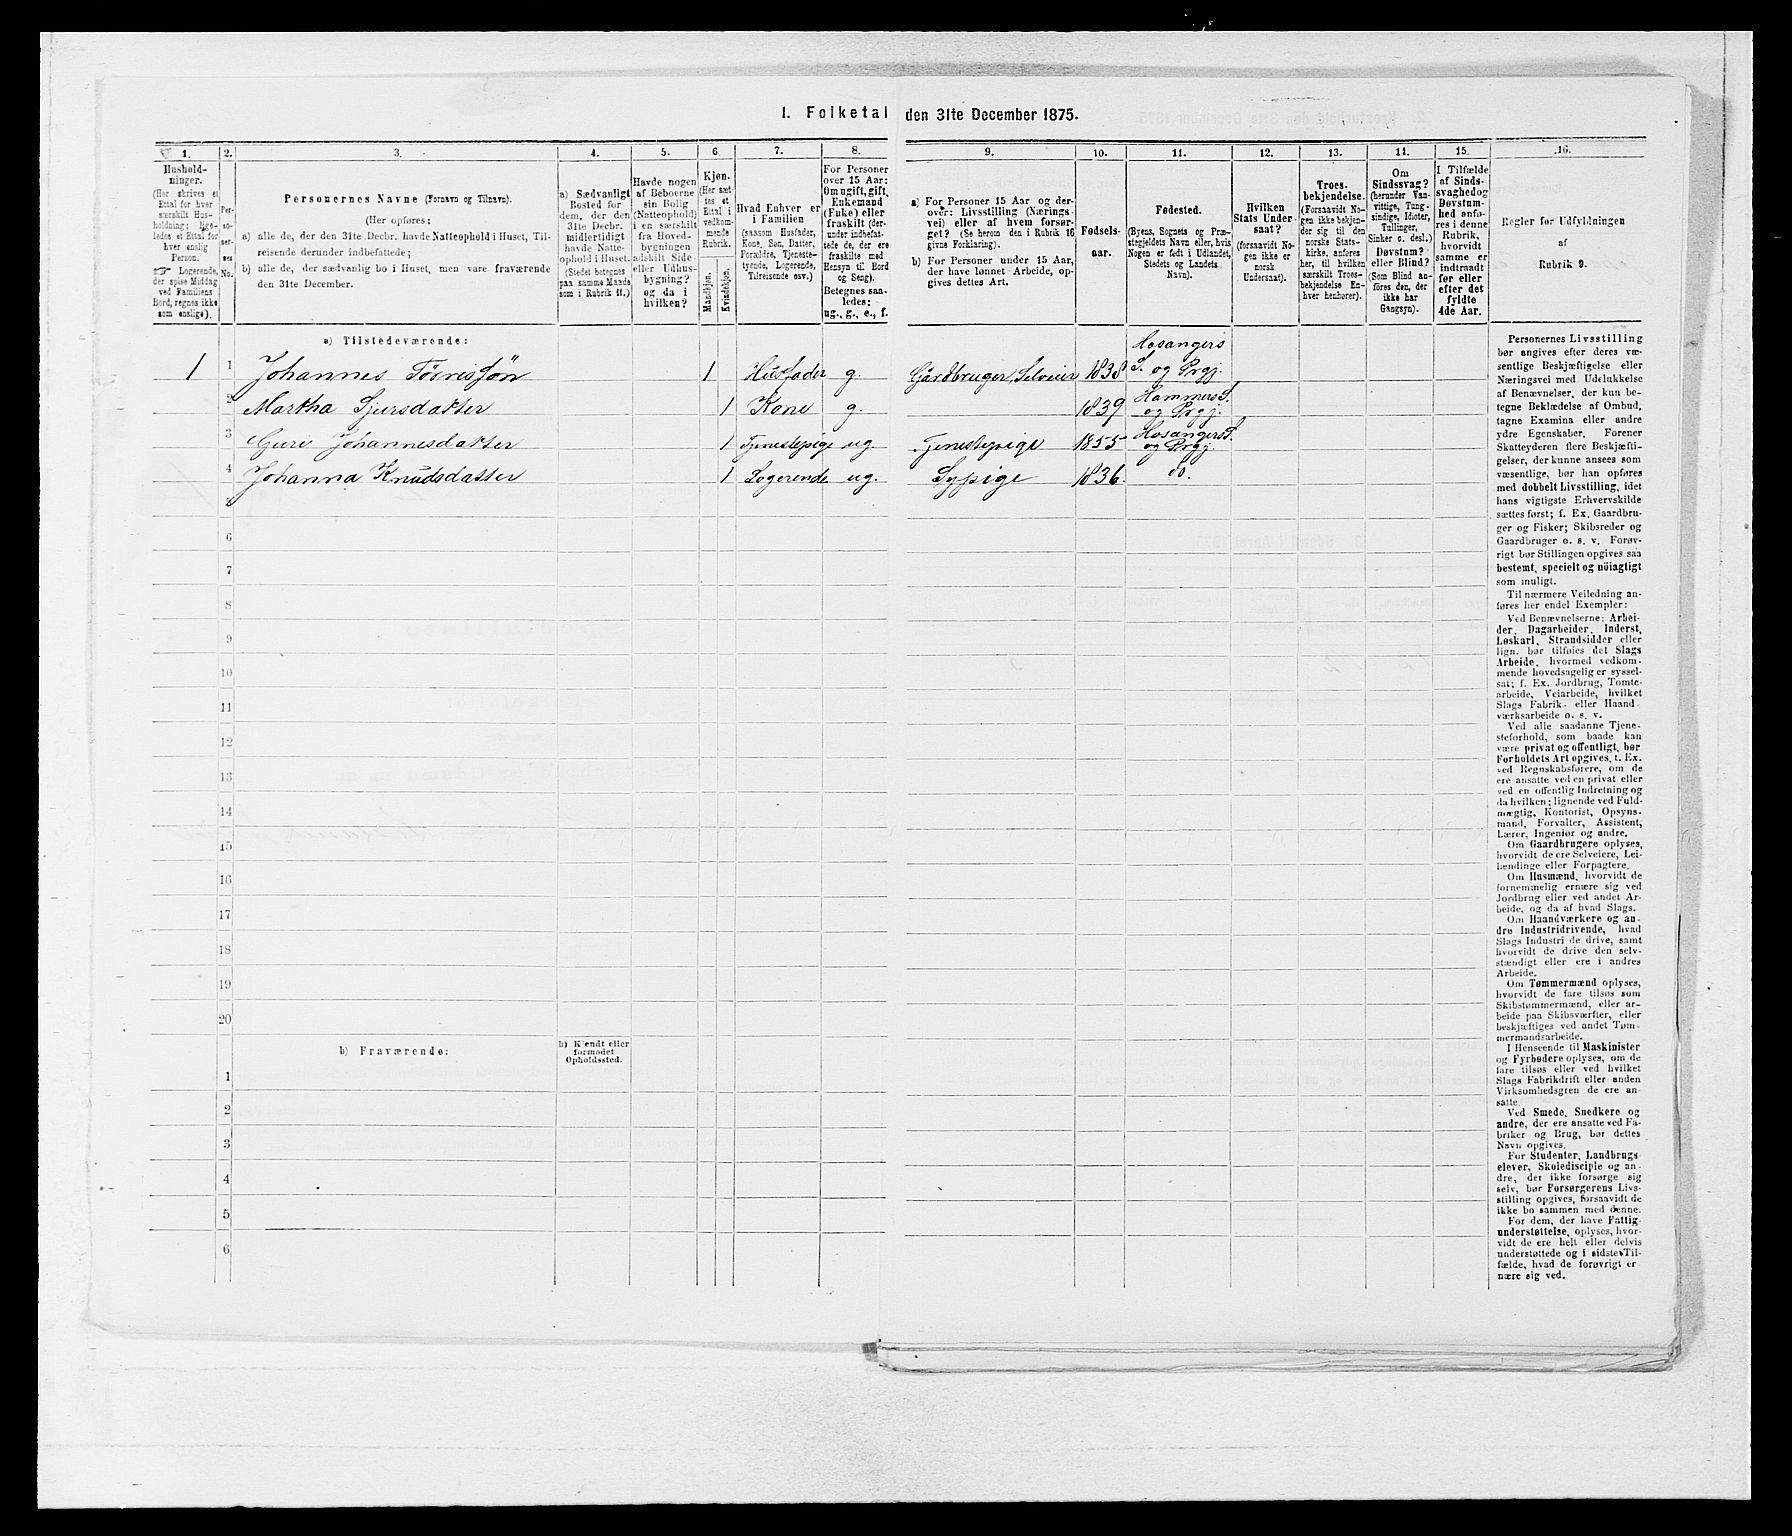 I. Folketal den 31te December 1875.
1. 2. 3. 4. 5. 6. 7. 8. 9. 10. 11. 12. 13. 14. 15. 16.
Hushold-
ninger.
(Her skrives et
Ettal for hver
særskilt Hus-
holdning; lige-
ledes et Ettal for
hver enslig
Person.
☞ Logerende,
der spise Middag
ved Familiens
Bord, regnes ikke
som enslige).
Per-
so-
ner-
nes
No.
Personernes Navne (Fornavn og Tilnavn).
(Her opføres:
a) alle de, der den 31te Decbr. havde Natteophold i Huset, Til-
reisende derunder indbefattede;
b) alle de, der sædvanlig bo i Huset, men vare fraværende
den 31te December.
a) Sædvanligt
Bosted for
dem, der den
31te Decbr.
midlertidigt
havde Natte-
ophold i Huset.
(Stedet betegnes
paa samme Maade
som i Rubrik 11.)
Havde nogen
af Beboerne
sin Bolig
(Natteophold)
i en særskilt
fra Hoved-
bygningen
adskilt Side-
eller Udhus-
bygning?
og da i
hvilken?
Kjøn.
(Her sæt-
tes et
Ettal i
vedkom-
mende
Rubrik.
Mandkjøn.
Kvindekjøn.
Hvad Enhver er
i Familien
(saasom Husfader,
Kone, Søn, Datter,
Forældre, Tjeneste-
tyende, Logerende,
Tilreisende osv.)
For Personer
over 15 Aar:
Om ugift, gift,
Enkemand
(Enke) eller
fraskilt (der-
under indbefat-
tede de, der ere
fraskilte med
Hensyn til Bord
og Seng).
Betegnes saa-
ledes:
ug., g., e., f.
a) For Personer 15 Aar og der-
over: Livsstilling (Nærings-
vei) eller af hvem forsør-
get? (Se herom den i Rubrik 16
givne Forklaring).
b) For Personer under 15 Aar,
der have lønnet Arbeide, op-
gives dettes Art.
Fødsels-
aar.
Fødested.
(Byens, Sognets og Præ-
stegjeldets Navn eller, hvis
Nogen er født i Udlandet,
Stedets og Landets
Navn).
Hvilken
Stats Under-
saat?
(forsaavidt No-
gen ikke er
norsk
Undersaat).
Troes-
bekjendelse.
(Forsaavidt No-
gen ikke bekjen-
der sig til den
norske Stats-
kirke, anføres
her, til hvilken
særskilt Troes-
bekjendelse En-
hver henhører).
Om
Sindssvag?
(herunder Van-
vittige, Tung-
sindige, Idioter,
Tullinger,
Sinker o. desl.)
Døvstum?
eller Blind?
(Som Blind an-
føres den, der
ikke har
Gangsyn).
I Tilfælde
af Sinds-
svaghed og
Døvstum-
hed anfø-
res i denne
Rubrik,
hvorvidt
samme er
indtraadt
før eller
efter det
fyldte
4de Aar.
Regler for Udfyldningen
af
Rubrik 9.
a) Tilstedeværende:
Hosangers
1 1 Johannes Tørressøn 1 Husfader g. Gårdbruger, Selveier 1838 S. og Prgj.
2 Martha Sjursdatter 1 Kone g. 1839 Hammers S.
og Prgj.
3 Guri Johannesdatter 1 Tjenestepige ug. Tjenestepige 1855 Hosangers S.
og Prgj.
4 Johanna Knudsdatter 1 Logerende ug. Sypige 1836. do.
6
7
8
9
10
11
12
13
14
15
16
17
18
19
20
b) Fraværende:
b) Kjendt eller
formodet
Opholdssted.
1
2
3
4
5
6
Personernes Livsstilling
bør angives efter deres væ-
sentlige Beskjæftigelse eller
Næringsvei med Udelukkelse
af Benævnelser, der kun be-
tegne Beklædelse af Ombud,
tagne Examina eller andre
ydre Egenskaber. Forener
Skatteyderen flere Beskjæfti-
gelser, der kunne ansees som
væsentlige, bør han opføres
med dobbelt Livsstilling, idet
hans vigtigste Erhvervskilde
sættes først; f. Ex. Gaardbru-
ger og Fisker; Skibsreder og
Gaardbruger o. s. v. Forøv-
rigt bør Stillingen opgives saa
bestemt, specielt og nöiagtigt
som muligt.
Til nærmere Veiledning an-
føres her endel Exempler:
Ved Benævnelserne: Arbei-
der, Dagarbeider, Inderst,
Løskarl, Strandsidder eller
lign. bør tilføies det Slags
Arbeide, hvormed vedkom-
mende hovedsagelig er syssel-
sat; f. Ex. Jordbrug, Tomte-
arbeide, Veiarbeide, hvilket
Slags Fabrik- eller Haand-
værksarbeide o. s. v.
Ved alle saadanne Tjene-
steforhold, som baade kan
være privat og offentligt, bør
Forholdets Art opgives, t. Ex.
ved Regnskabsførere, om de
ere ansatte ved en privat eller
ved en offentlig Indretning og
da hvilken; lignende ved Fuld-
mægtig, Kontorist, Opsyns-
mand, Forvalter, Assistent,
Lærer, Ingeniør og andre.
Om Gaardbrugere oplyses,
hvorvidt de ere Selveiere, Lei-
lændinge eller Forpagtere.
Om Husmænd, hvorvidt de
fornemmelig ernære sig ved
Jordbrug eller ved andet Ar-
beide, og da af hvad Slags.
Om Haandværkere og an-
dre Industridrivende, hvad
Slags Industri de drive, samt
hvorvidt de drive den selv-
stændigt eller ere i andres
Arbeide.
Om Tømmermænd oplyses,
hvorvidt de fare tilsøs som
Skibstømmermænd, eller ar-
beide paa Skibsværfter, eller
beskjæftiges ved andet Tøm-
mermandsarbeide.
I Henseende til Maskinister
og Fyrbødere oplyses, om de
fare tilsøs eller ved hvilket
Slags Fabrikdrift eller anden
Virksomhedsgren de ere an-
satte.
Ved Smede, Snedkere og
andre, der ere ansatte ved Fa-
briker og Brug, bør dettes
Navn opgives.
For Studenter, Landbrugs-
elever, Skoledisciple og an-
dre, der ikke forsørge sig
selv, bør Forsørgerens Livs-
stilling opgives, forsaavidt de
ikke bo sammen med denne.
For dem, der have Fattig-
understøttelse, oplyses, hvor-
vidt de ere helt eller delvis
understøttede og i sidste Til-
fælde, hvad de forøvrigt er-
nære sig ved.